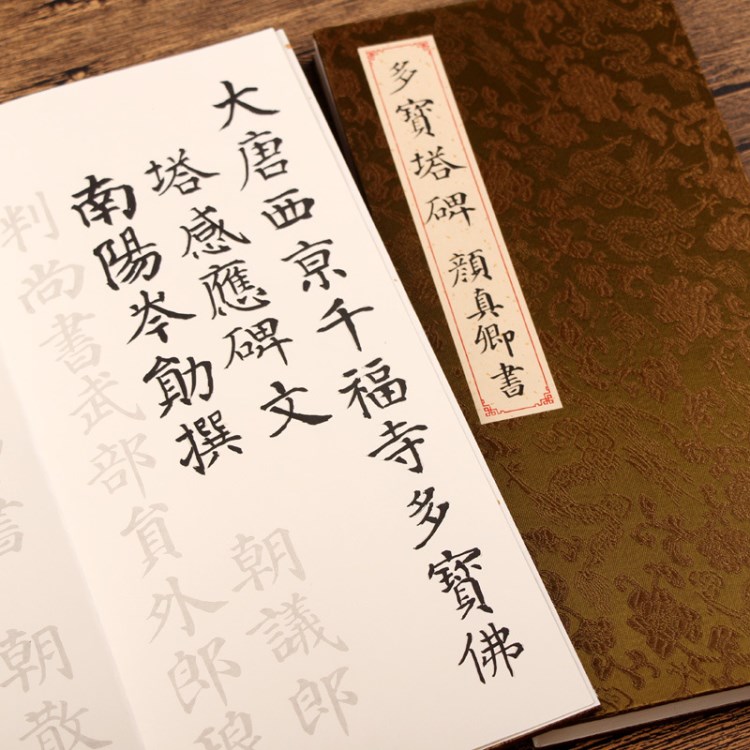 大唐西京千福寺多寶佛
塔感應碑文
南陽岑勛撰
朝議郎
判尚書武部員外郎
朝散
書
多寶塔碑 顏真卿書